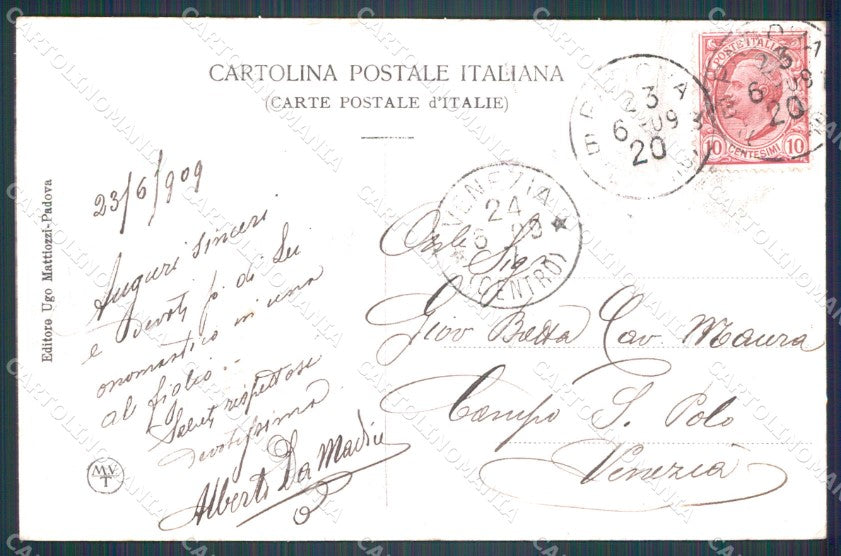 CARTOLINA POSTALE ITALIANA
(CARTE POSTALE d'ITALIE)
BOLOGNA
23
6 09
20
POSTE ITALIANE
CENTESIMI
10 10
VENEZIA
24
6 09
(CENTRO)
23/6/909
Auguri sinceri
e devoti p. di Lei
onomastico in una
al figlio. -
Saluti rispettosi
devotissima
Alberti Da
Onle Sigr
Giov Batta Cav. Maura
Campo S. Polo
Venezia
Editore Ugo Mattiozzi-Padova
CARTOLINOMANIA